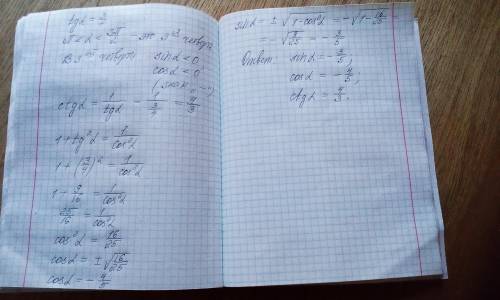 tgα = 3/4
π < α < 3π/2 - это 3-ья четверть
В 3-ей четверти sinα < 0
cosα < 0
(знак "-")
ctgα = 1/tgα = 1/(3/4) = 4/3
1 + tg²α = 1/cos²α
1 + (3/4)² = 1/cos²α
1 + 9/16 = 1/cos²α
25/16 = 1/cos²α
cos²α = 16/25
cosα = ±√(16/25)
cosα = -4/5
sinα = ± √(1-cos²α) = -√(1-16/25) =
= -√(9/25) = -3/5
Ответ: sinα = -3/5;
cosα = -4/5;
ctgα = 4/3.